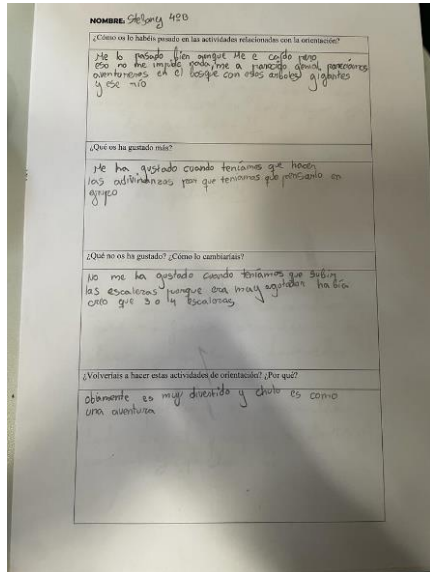 NOMBRE: Stefany 4ºB
¿Cómo os lo habéis pasado en las actividades relacionadas con la orientación?
Me lo pasado bien aunque Me e caído pero
eso no me impide nada, me a parecido genial, pareciamos
aventureros en el bosque con esos arboles gigantes
y ese rio
¿Qué os ha gustado más?
Me ha gustado cuando teníamos que hacer
las adivinanzas por que teniamos que pensarlo en
grupo
¿Qué no os ha gustado? ¿Cómo lo cambiaríais?
No me ha gustado cuando teníamos que subir
las escaleras porque era muy agotador había
creo que 3 o 4 escaleras
¿Volveríais a hacer estas actividades de orientación? ¿Por qué?
obiamente es muy divertido y chulo es como
una aventura